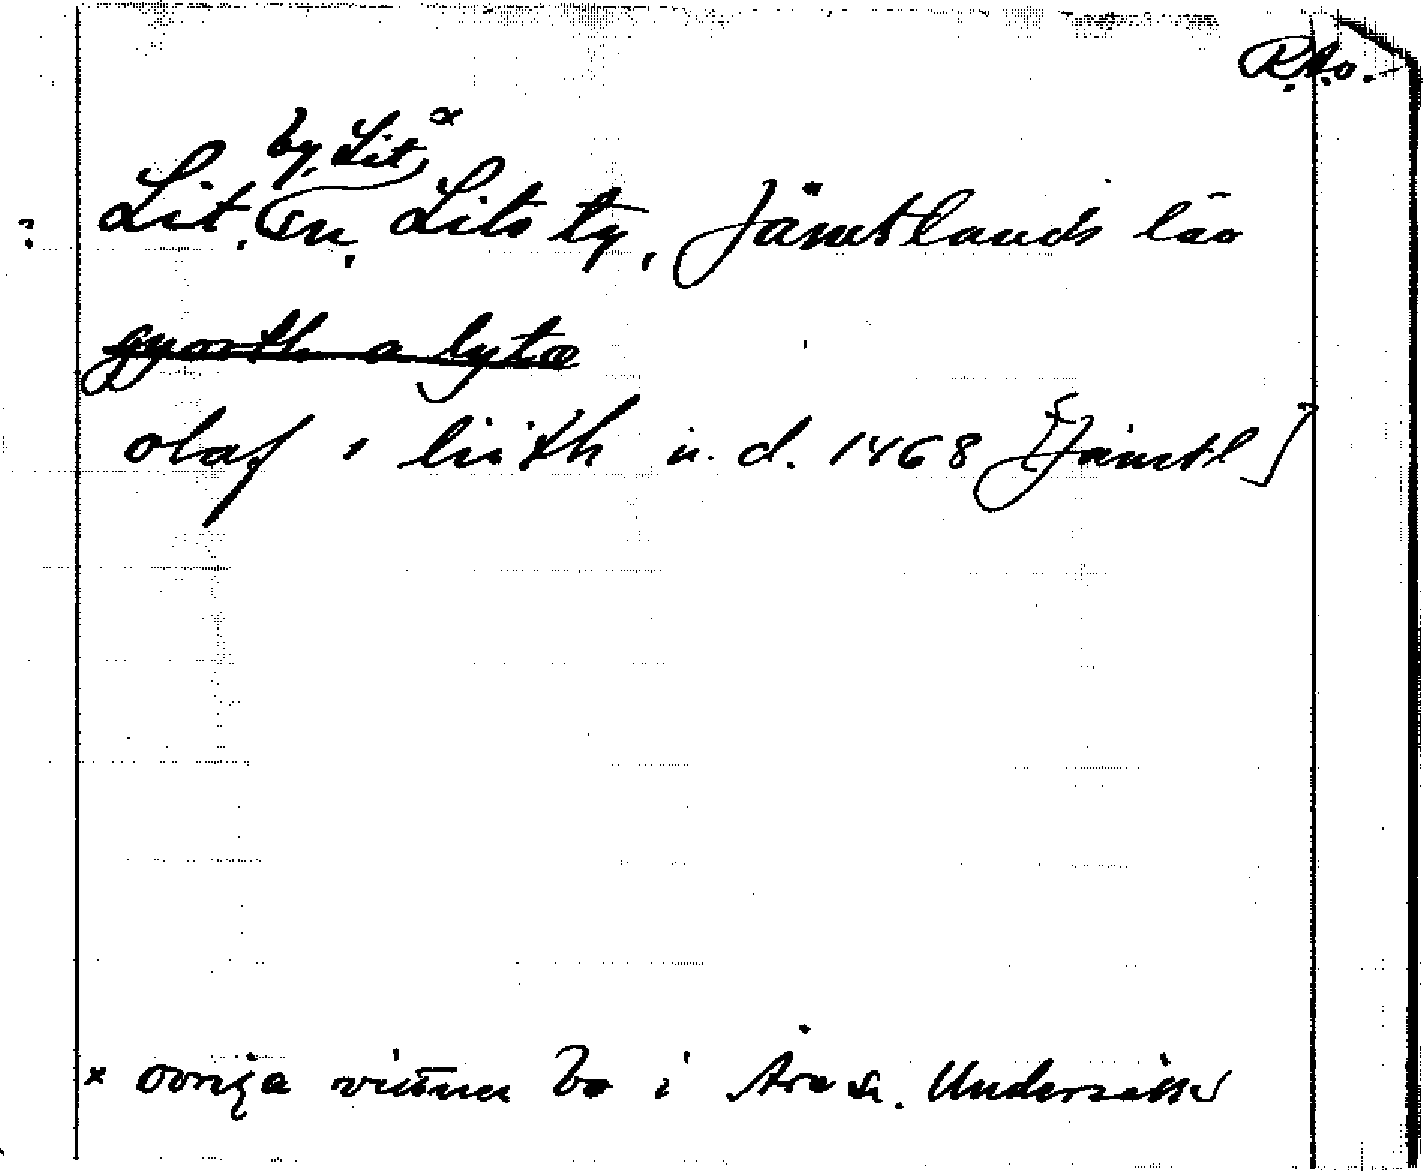 R.Ao.
by, Lit x
Lit. sn, Lits tg, Jämtlands län
gyorth a lytæ
olaf i liith u. d. 1468 [Jämtl]
x övriga vittnen bo i Åre sn. Undersåker